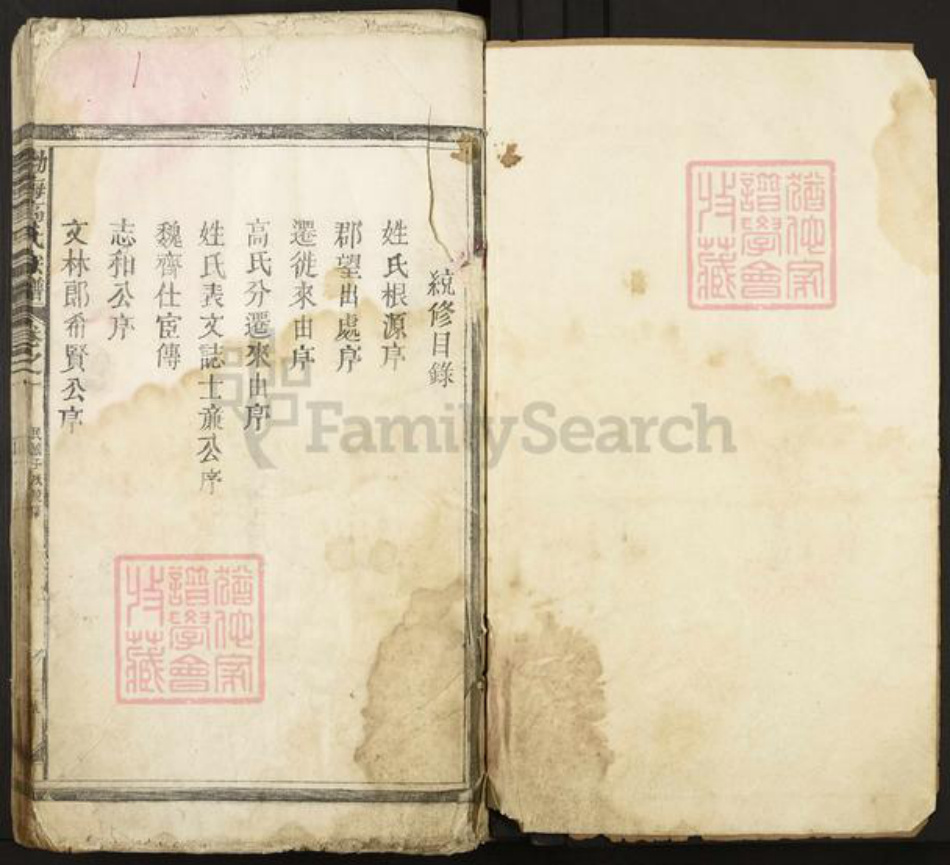 統修目錄
姓氏根源序
郡望出處序
遷徙來由序
高氏分遷來由序
姓氏表文誌士廉公序
魏齊仕宦傳
志和公序
文林郎希賢公序
渤海高氏族譜
卷之一
猶他家譜學會收藏
猶他家譜學會收藏
FamilySearch